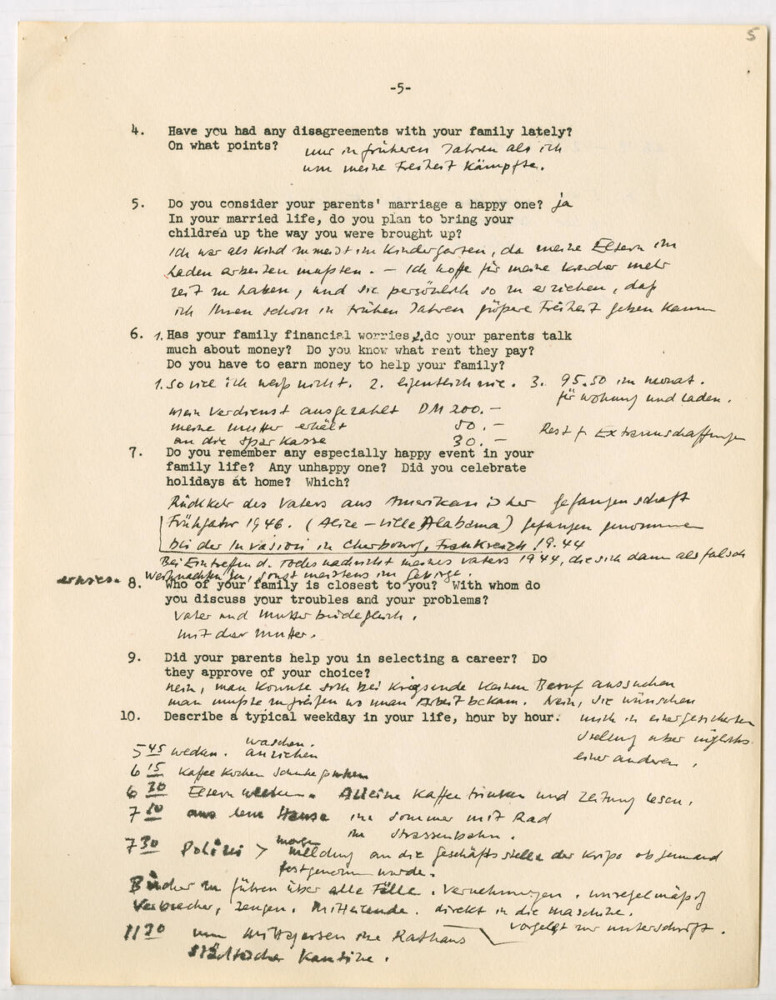 5
-5-
4. Have you had any disagreements with your family lately?
On what points? nur in früheren Jahren als ich
um meine Freiheit kämpfte.
5. Do you consider your parents' marriage a happy one? ja
In your married life, do you plan to bring your
children up the way you were brought up?
Ich war als Kind zumeist im Kindergarten, da meine Eltern im
Laden arbeiten mußten. – Ich hoffe für meine Kinder mehr
Zeit zu haben, und sie persönlich so zu erziehen, daß
ich Ihnen schon in frühen Jahren größere Freiheit geben kann
6. 1. Has your family financial worries, 2. do your parents talk
much about money? Do you know what rent they pay?
Do you have to earn money to help your family?
1. Soviel ich weiß nicht. 2. eigentlich nie. 3. 95.50 im Monat.
für Wohnung und Laden.
mein Verdienst ausgezahlt DM 200.–
meine Mutter erhält 50.–
Rest f. Extraanschaffungen
an die Sparkasse 30.–
7. Do you remember any especially happy event in your
family life? Any unhappy one? Did you celebrate
holidays at home? Which?
Rückkehr des Vaters aus Amerikanischer Gefangenschaft
Frühjahr 1946. (Alice-ville Alabama) gefangen genommen
bei der Invasion in Cherbourg, Frankreich! 19.44
Bei Eintreffen d. Todesnachricht meines Vaters 1944, die sich dann als falsch
erwies. Weihnachten ja, sonst meistens im Gebirge.
8. Who of your family is closest to you? With whom do
you discuss your troubles and your problems?
Vater und Mutter beide gleich.
mit der Mutter.
9. Did your parents help you in selecting a career? Do
they approve of your choice?
nein, man konnte sich bei Kriegsende keinen Beruf aussuchen
man mußte zugreifen wo man Arbeit bekam. Nein, sie wünschen
10. Describe a typical weekday in your life, hour by hour. mich in einer gesicherten
Stellung aber
einer anderen.
5 45 wecken. waschen. anziehen
6 15 Kaffee kochen Schuhe putzen
6 30 Eltern wecken. Alleine Kaffee trinken und Zeitung lesen.
7 10 aus dem Hause im Sommer mit Rad
im Strassenbahn.
7 30 Polizei > morgen meldung an die Geschäftsstelle der Kripo ob jemand
festgenommen wurde.
Bücher zu führen über alle Fälle. Vernehmungen. unregelmäßig
Verbrecher, Zeugen. direkt in die Maschine.
vorgelegt zur Unterschrift.
11 30 zum Mittagessen ins Rathaus
städtischer Kantine.